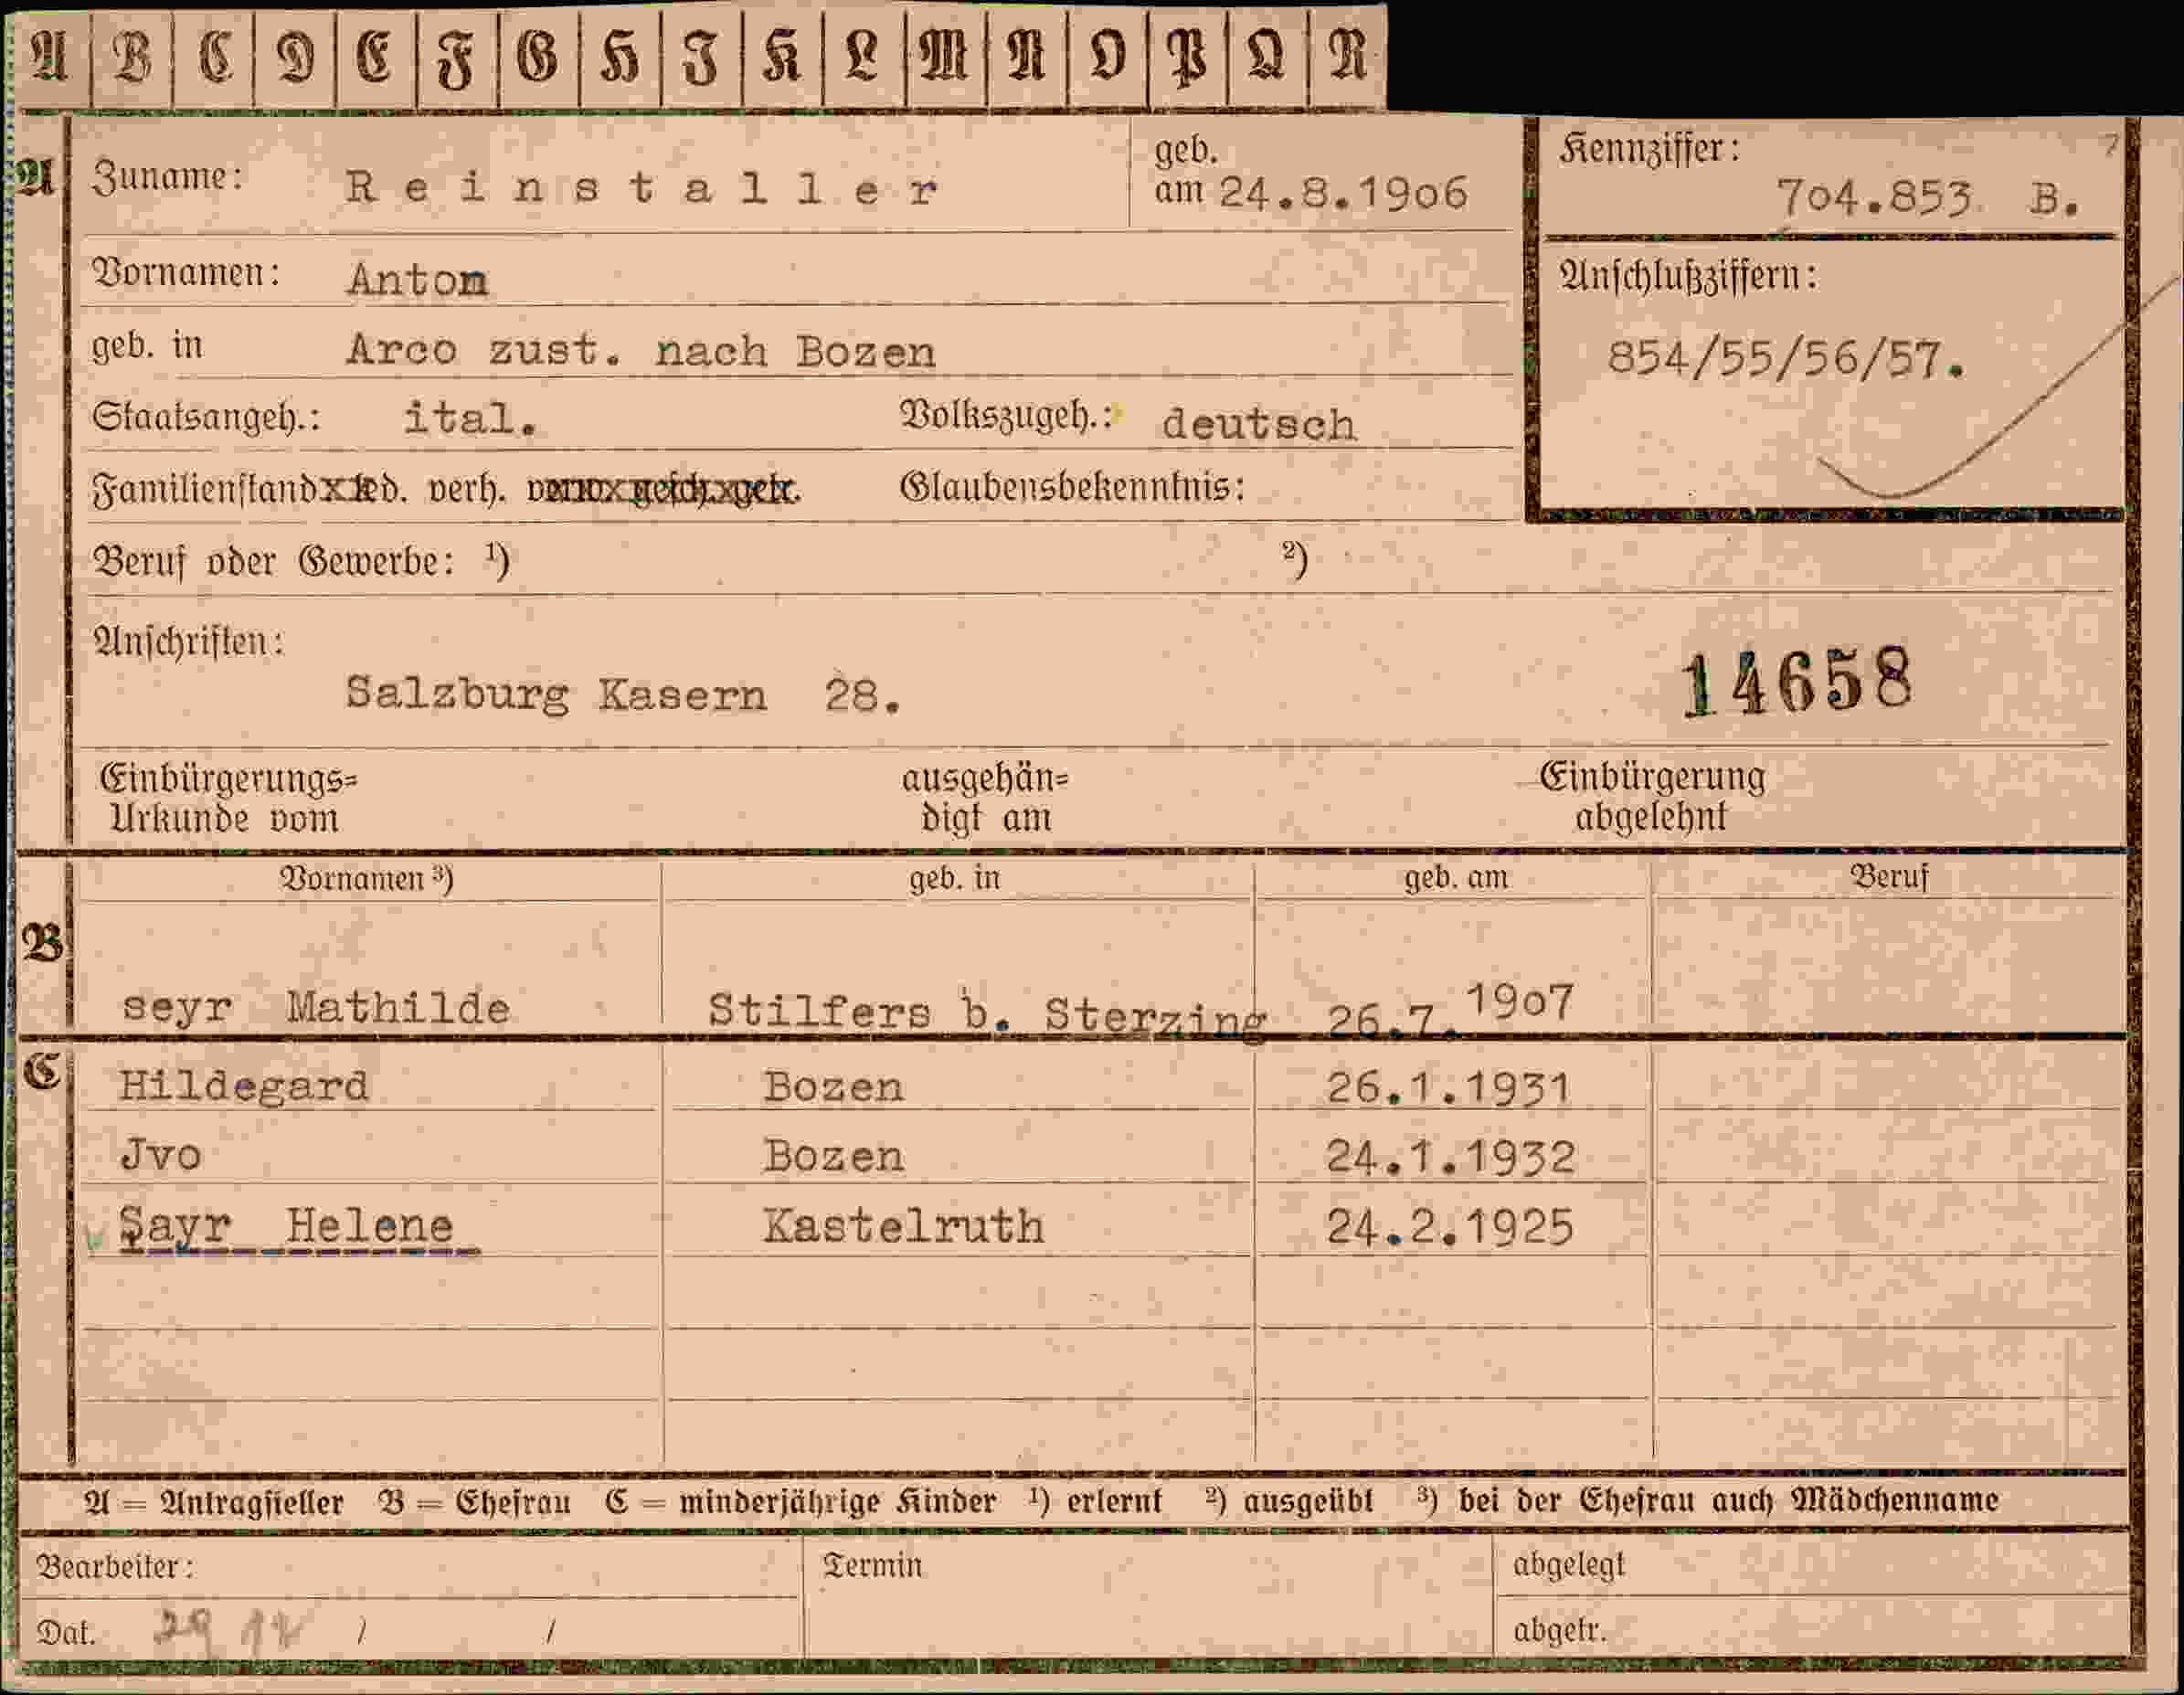 A B C D E F G H I K L M N O P Q R
A Zuname: Reinstaller geb. am 24.8.1906
Kennziffer: 704.853 B.
Vornamen: Anton
Anschlußziffern:
geb. in Arco zust. nach Bozen
854/55/56/57.
Staatsangeh.: ital. Volkszugeh.: deutsch
Familienstand led. verh. verw. gesch. getr. Glaubensbekenntnis:
Beruf oder Gewerbe: ¹) ²)
Anschriften:
Salzburg Kasern 28. 14658
Einbürgerungs= ausgehän= Einbürgerung
Urkunde vom digt am abgelehnt
Vornamen ³) geb. in geb. am Beruf
B
seyr Mathilde Stilfers b. Sterzing 26.7.1907
C Hildegard Bozen 26.1.1931
Jvo Bozen 24.1.1932
Sayr Helene Kastelruth 24.2.1925
A = Antragsteller B = Ehefrau C = minderjährige Kinder ¹) erlernt ²) ausgeübt ³) bei der Ehefrau auch Mädchenname
Bearbeiter: Termin abgelegt
Dat. / / abgetr.